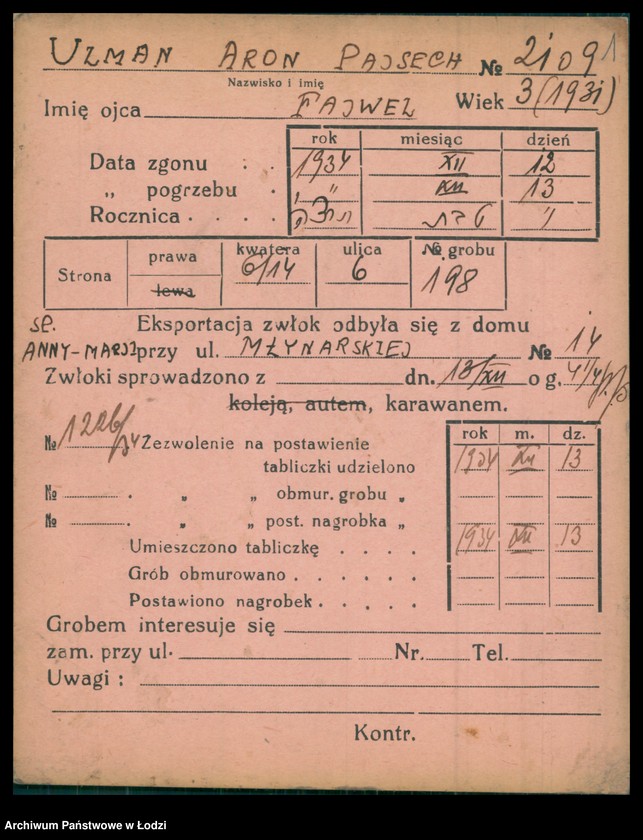 UZMAN ARON PAJSECH № 21091
Nazwisko i imię
Imię ojca FAJWEL Wiek 3 (1931)
rok miesiąc dzień
Data zgonu . . 1934 XII 12
„ pogrzebu . „ XII 13
Rocznica . . . .
Strona prawa kwatera ulica № grobu
lewa 6/14 6 198
Sp. Eksportacja zwłok odbyła się z domu
ANNY-MARJI przy ul. MŁYNARSKIEJ № 14
Zwłoki sprowadzono z dn. 13/XII o g.
koleją, autem, karawanem.
rok m. dz.
№ Zezwolenie na postawienie
tabliczki udzielono 1934 XII 13
№ . „ „ obmur. grobu „
№ . „ „ post. nagrobka „
Umieszczono tabliczkę . . . . 1934 XII 13
Grób obmurowano . . . . . .
Postawiono nagrobek . . . . .
Grobem interesuje się
zam. przy ul. Nr. Tel.
Uwagi :
Kontr.
Archiwum Państwowe w Łodzi